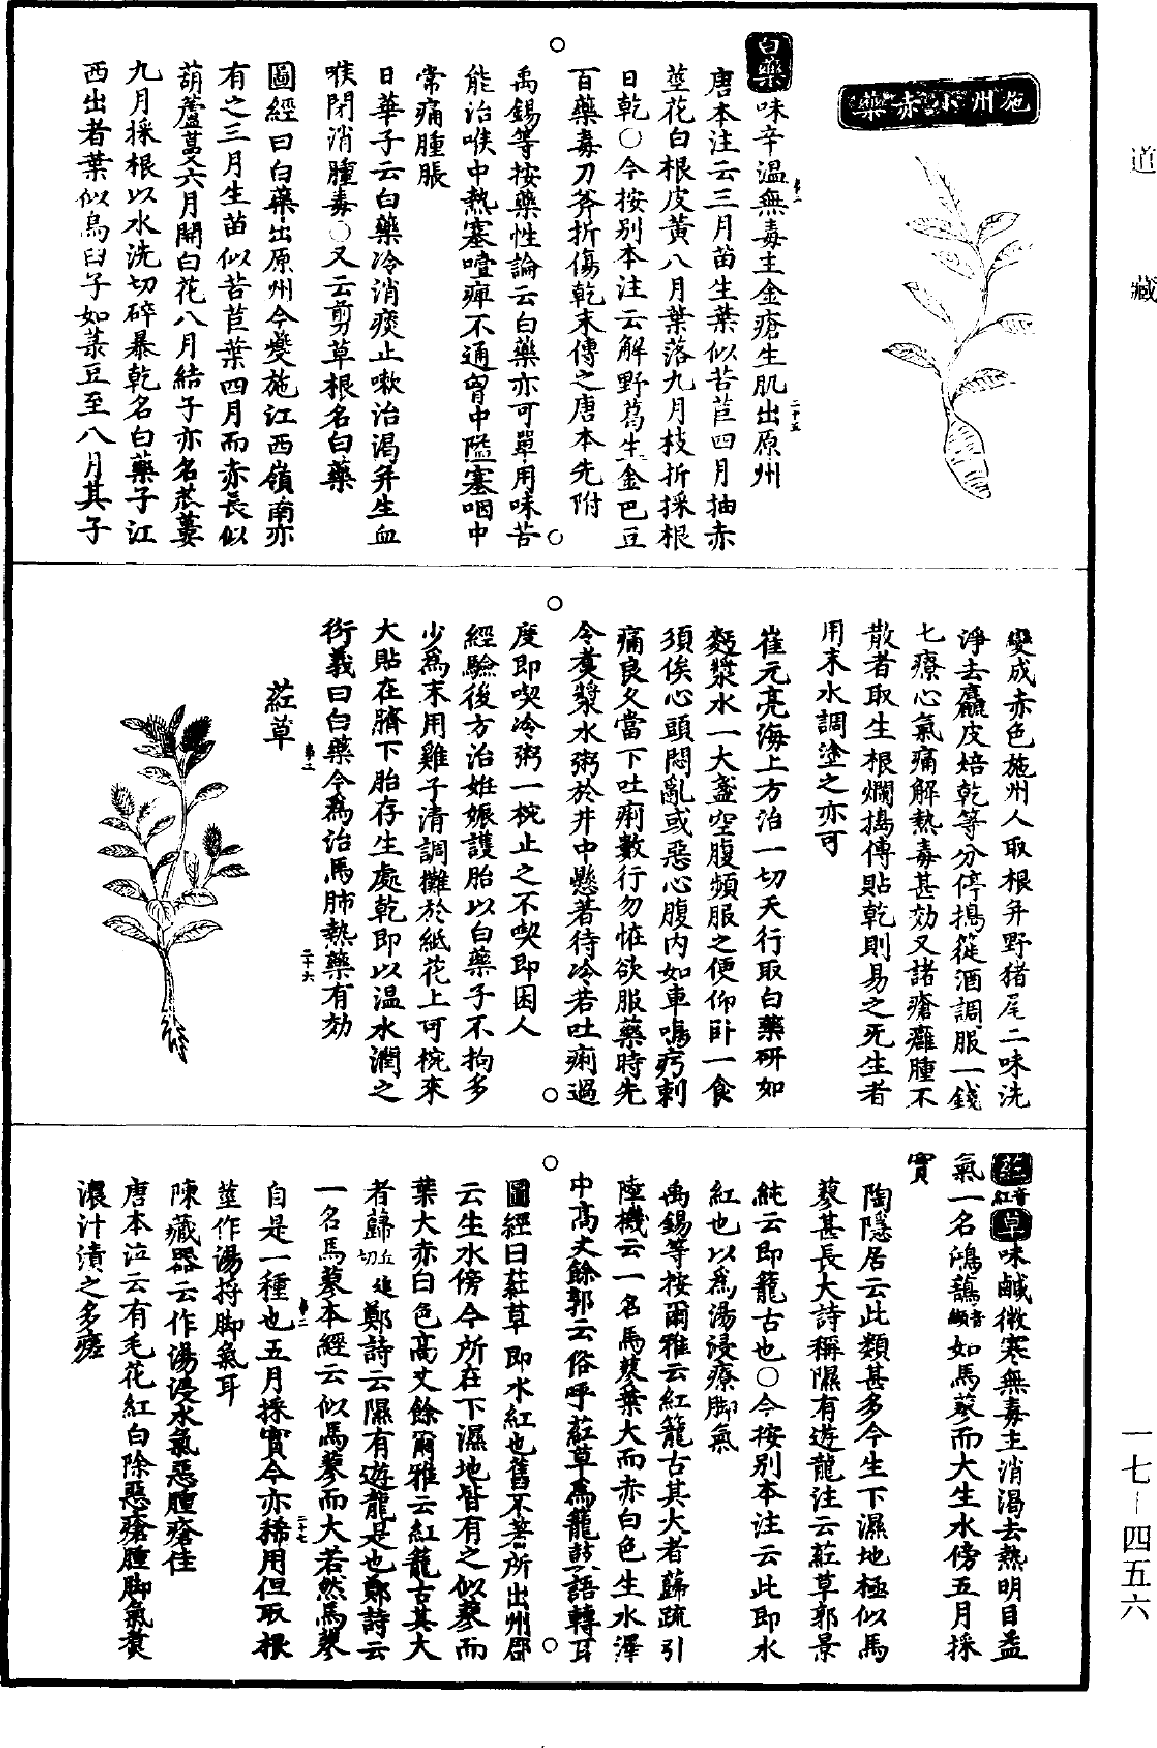 道藏
施州小赤藥
白藥味辛溫無毒主金瘡生肌出原州
唐本注云三月苗生葉似苦苣四月抽赤
莖花白根皮黃八月葉落九月枝折採根
日乾○今按別本注云解野葛生金巴豆
百藥毒刀斧折傷乾末傅之唐本先附
禹錫等按藥性論云白藥亦可單用味苦
能治喉中熱塞噎痺不通胷中隘塞咽中
常痛腫脹
日華子云白藥冷消痰止嗽治渴并生血
喉閉消腫毒○又云剪草根名白藥
圖經曰白藥出原州今夔施江西嶺南亦
有之三月生苗似苦苣葉四月而赤長似
葫蘆蔓六月開白花八月結子亦名苽蔞
九月採根以水洗切碎暴乾名白藥子江
西出者葉似烏臼子如菉豆至八月其子
變成赤色施州人取根并野猪尾二味洗
淨去麤皮焙乾等分停搗篵酒調服一錢
七療心氣痛解熱毒甚効又諸瘡癰腫不
散者取生根爛搗傅貼乾則易之无生者
用末水調塗之亦可
崔元亮海上方治一切天行取白藥研如
麪漿水一大盞空腹頻服之便仰卧一食
須俟心頭悶亂或惡心腹内如車鳴疞刺
痛良久當下吐痢數行勿恠欲服藥時先
令煑漿水粥於井中懸著待冷若吐痢過
度即喫冷粥一椀止之不喫即困人
經驗後方治姙娠護胎以白藥子不拘多
少爲末用雞子清調攤於紙花上可椀來
大貼在臍下胎存生處乾即以温水潤之
衍義曰白藥今爲治馬肺熱藥有効
葒草
葒音紅草味鹹微寒無毒主消渴去熱明目益
氣一名鴻䓞音纈如馬蓼而大生水傍五月採
實
陶隱居云此類甚多今生下濕地極似馬
蓼甚長大詩稱隰有遊龍注云葒草郭景
純云即籠古也○今按別本注云此即水
紅也以爲湯浸療脚氣
禹錫等按爾雅云紅籠古其大者蘬疏引
陸機云一名馬蓼葉大而赤白色生水澤
中髙丈餘郭云俗呼葒草爲籠鼓語轉耳
圖經曰葒草即水紅也舊不著所出州郡
云生水傍今所在下濕地皆有之似蓼而
葉大赤白色髙丈餘爾雅云紅籠古其大
者蘬丘追切鄭詩云隰有遊龍是也鄭詩云
一名馬蓼本經云似馬蓼而大若然馬蓼
自是一種也五月採實今亦稀用但取根
莖作湯捋脚氣耳
陳藏器云作湯浸水氣惡腫瘡佳
唐本注云有毛花紅白除惡瘡腫脚氣煑
濃汁漬之多瘥
一七-四五六